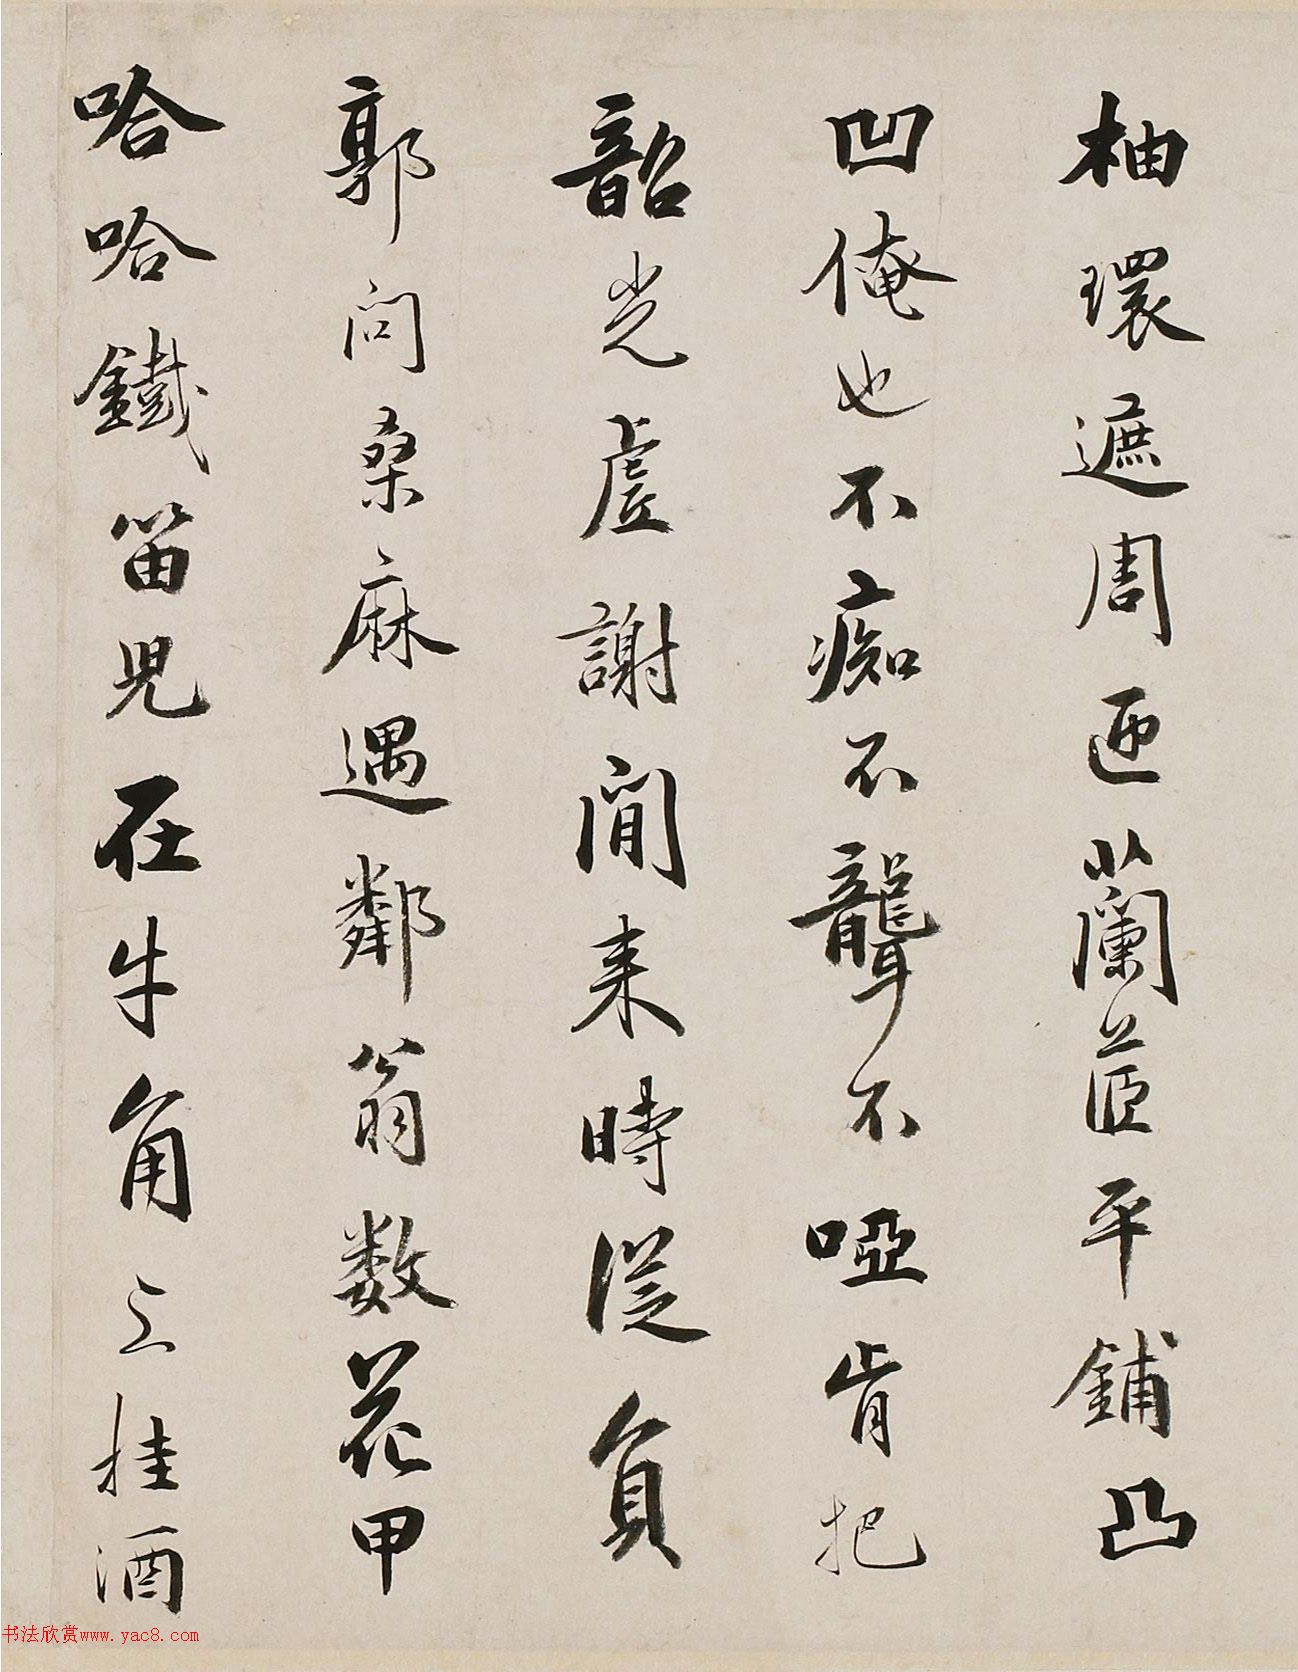 柚環遮周匝蘭茝平鋪凸
凹俺也不痴不聾不啞肯把
韶光虛謝閒来時從負
郭问桑麻遇鄰翁数花甲
哈哈鐵笛兒在牛角上挂酒
书法欣赏www.yac8.com